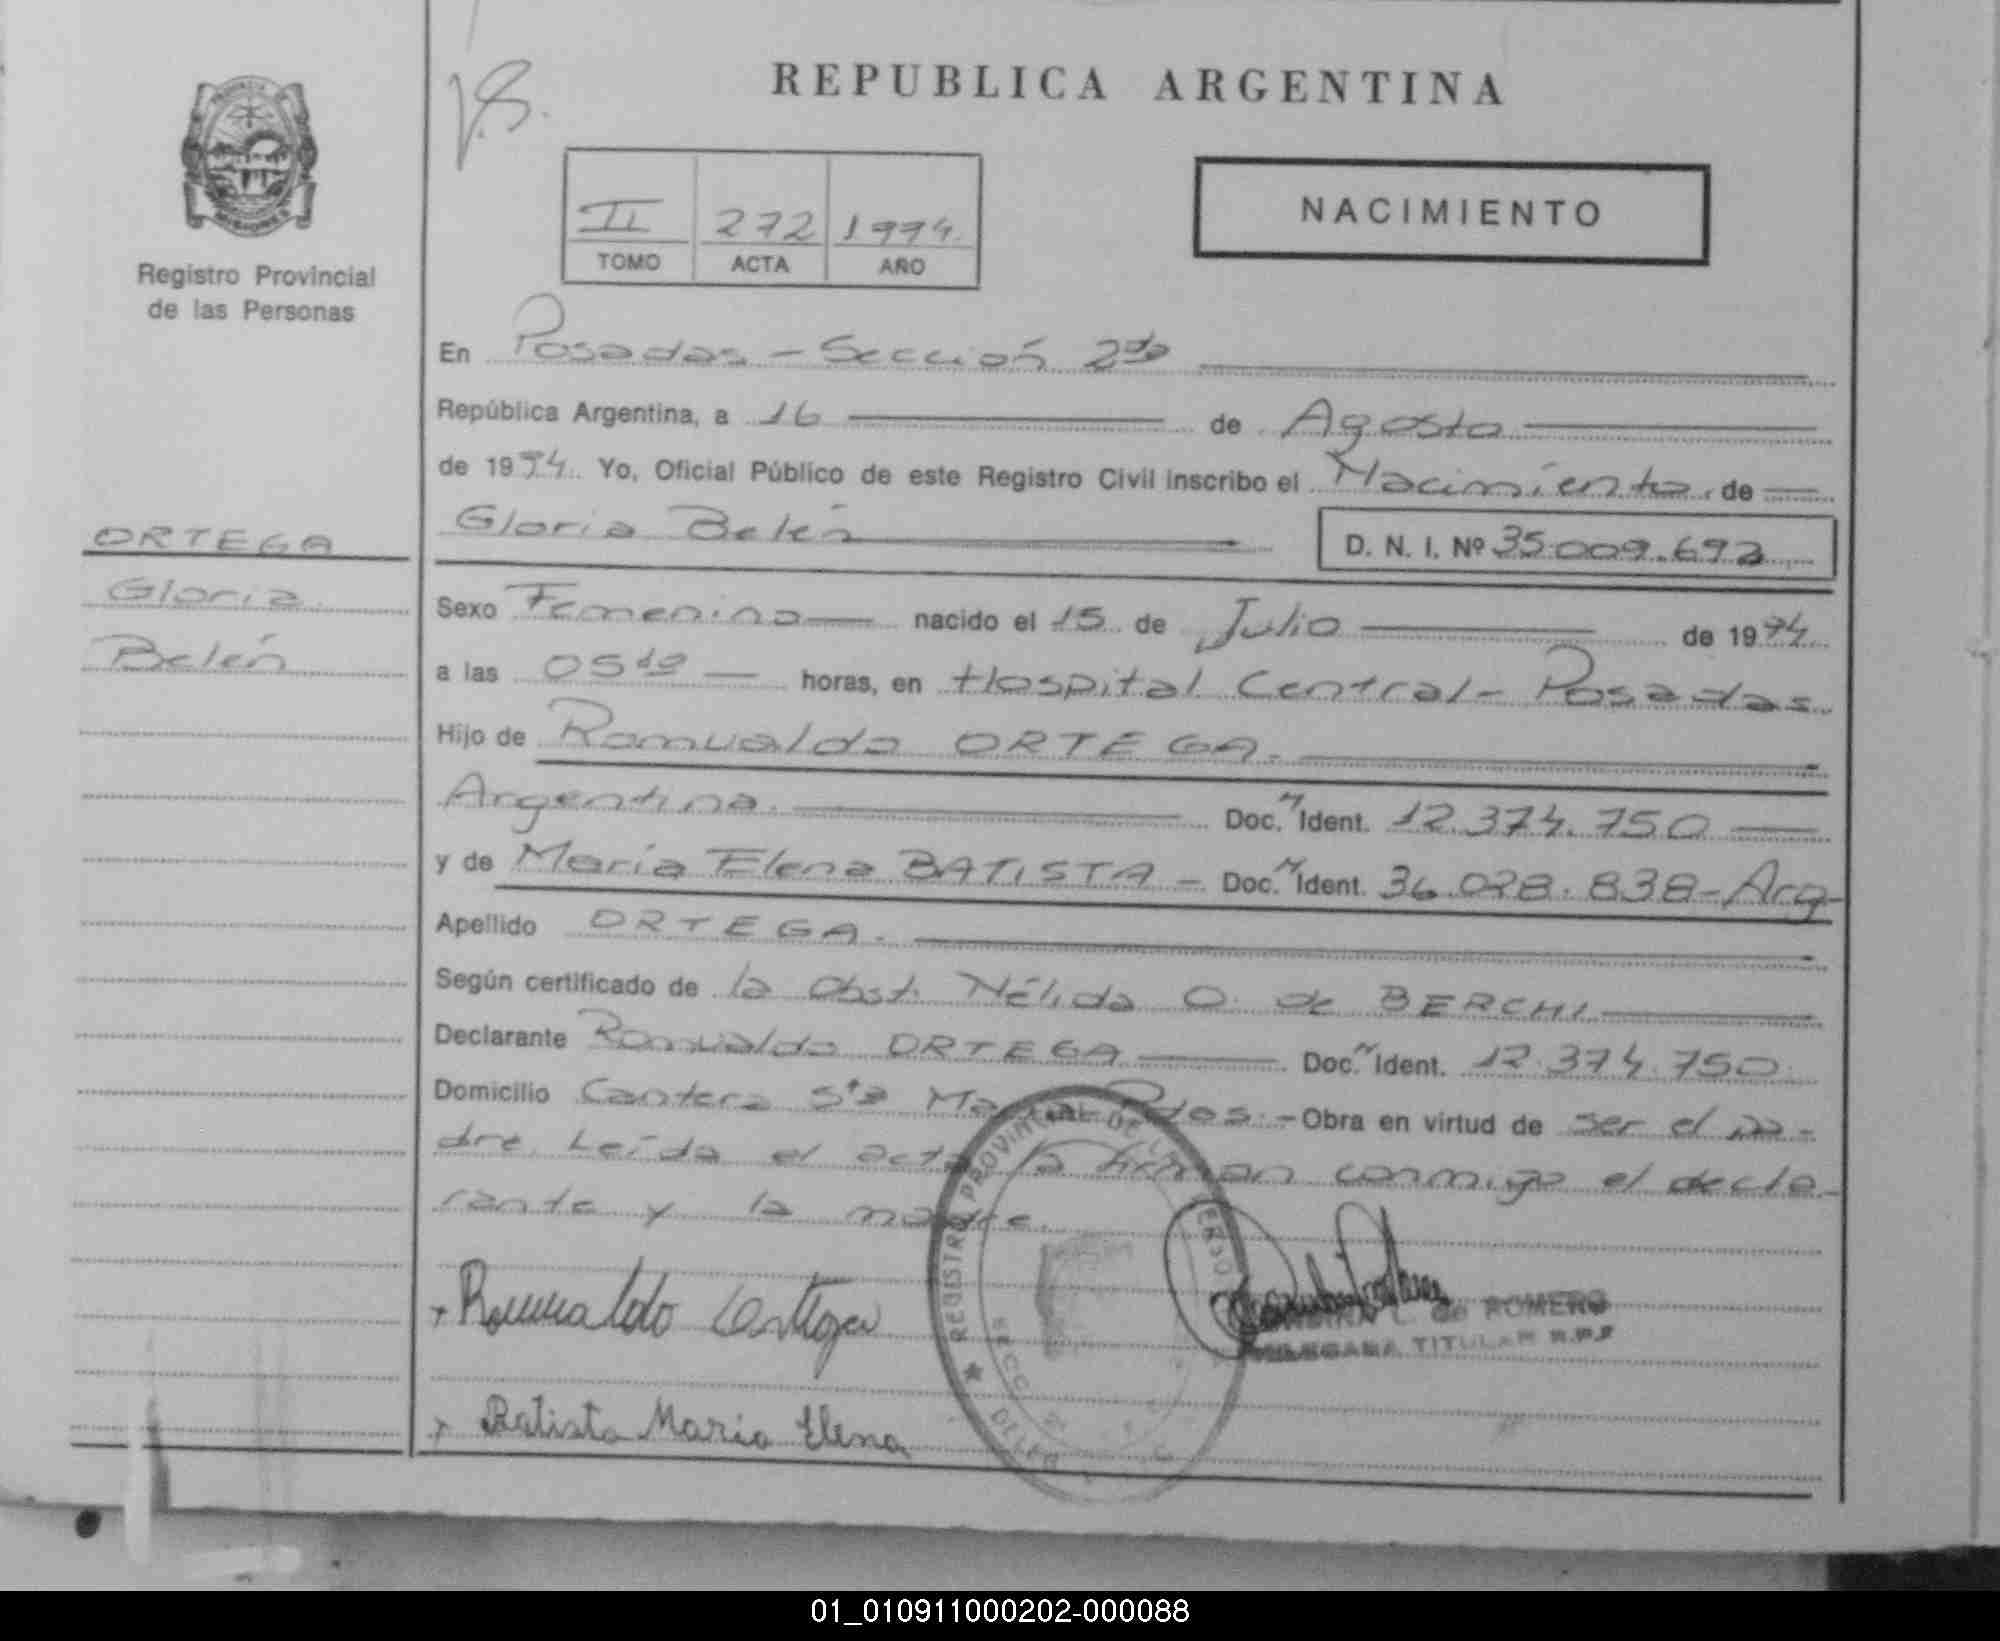 J.S.
REPUBLICA ARGENTINA
II 272 1974.
TOMO ACTA AÑO
NACIMIENTO
Registro Provincial
de las Personas
En Posadas - Sección 2da
República Argentina, a 16 de Agosto
de 1974. Yo, Oficial Público de este Registro Civil inscribo el Nacimiento de
Gloria Belén D. N. I. Nº 35.009.692
ORTEGA
Gloria
Belén
Sexo Femenino nacido el 15 de Julio de 1974
a las 05 horas, en Hospital Central - Posadas
Hijo de Romualdo ORTEGA.
Argentina. Doc. Ident. 12.374.750
y de María Elena BATISTA - Doc. Ident. 36.028.838 - Arg-
Apellido ORTEGA.
Según certificado de la Obst. Nélida O. de BERCHI
Declarante Romualdo ORTEGA Doc. Ident. 12.374.750
Domicilio Cantera Sta Pdas. - Obra en virtud de ser el pa-
dre. Leída el acta la firman conmigo el decla-
rante y la madre.
Romualdo Ortega
REGISTRO PROVINCIAL DE
de ROMERO
TITULAR R.P.P
Batista Maria Elena
01_010911000202-000088